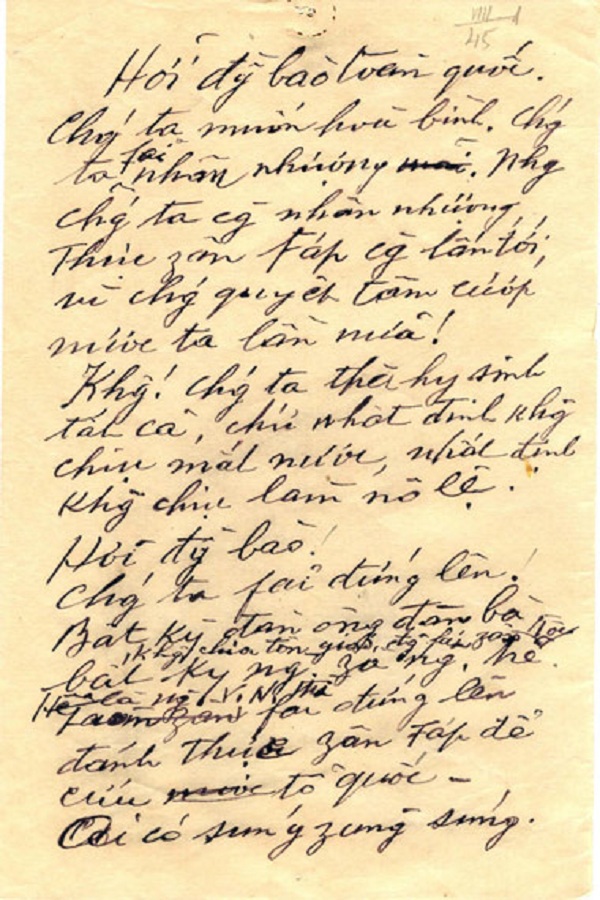 45
Hỡi đ̃g bào toàn quốc.
Chǵ ta muốn hoà bình. Chǵ
ta fải nhân nhượng. Nhg
chǵ ta cg̃ nhân nhượng,
Thực zân Fáp cg̃ lấn tới,
vì chǵ quyết tâm cướp
nước ta lần nữa!
Khg̃! Chǵ ta thà hy sinh
tất cả, chứ nhất định khg̃
chịu mất nước, nhất định
khg̃ chịu làm nô lệ.
Hỡi đ̃g bào!
Chǵ ta fải đứng lên!
Bất kỳ đàn ông đàn bà
Khg̃ chia tôn giáo, đ̃g fái, zân tộc
bất kỳ ng. zà ng. trẻ.
Hễ là ng. V.N. thì
fải đứng lên
đánh thực zân Fáp để
cứu tổ quốc -
Ai có súng zùng súng.